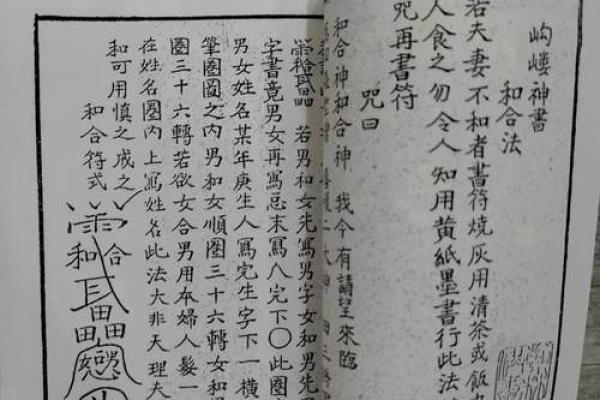 岣嶁神書
和合法
若夫妻不和者書符燒灰用清茶或飯
人食之勿令人知用黄紙墨書行此法
咒再書符
咒曰
和合神和合神我今有請望來臨
若男和女先寫男字女和男先
字書竟男女再寫忌末寫八完下〇此圈
男女姓名某年庚生人寫完生字下一橫
筆圈圓之内男和女順圈三十六轉女和
圈三十六轉若欲女合男用本婦人髮一
在姓名圈内上寫姓名此法大非天理夫
和可用慎之戒之
和合符式
合
和